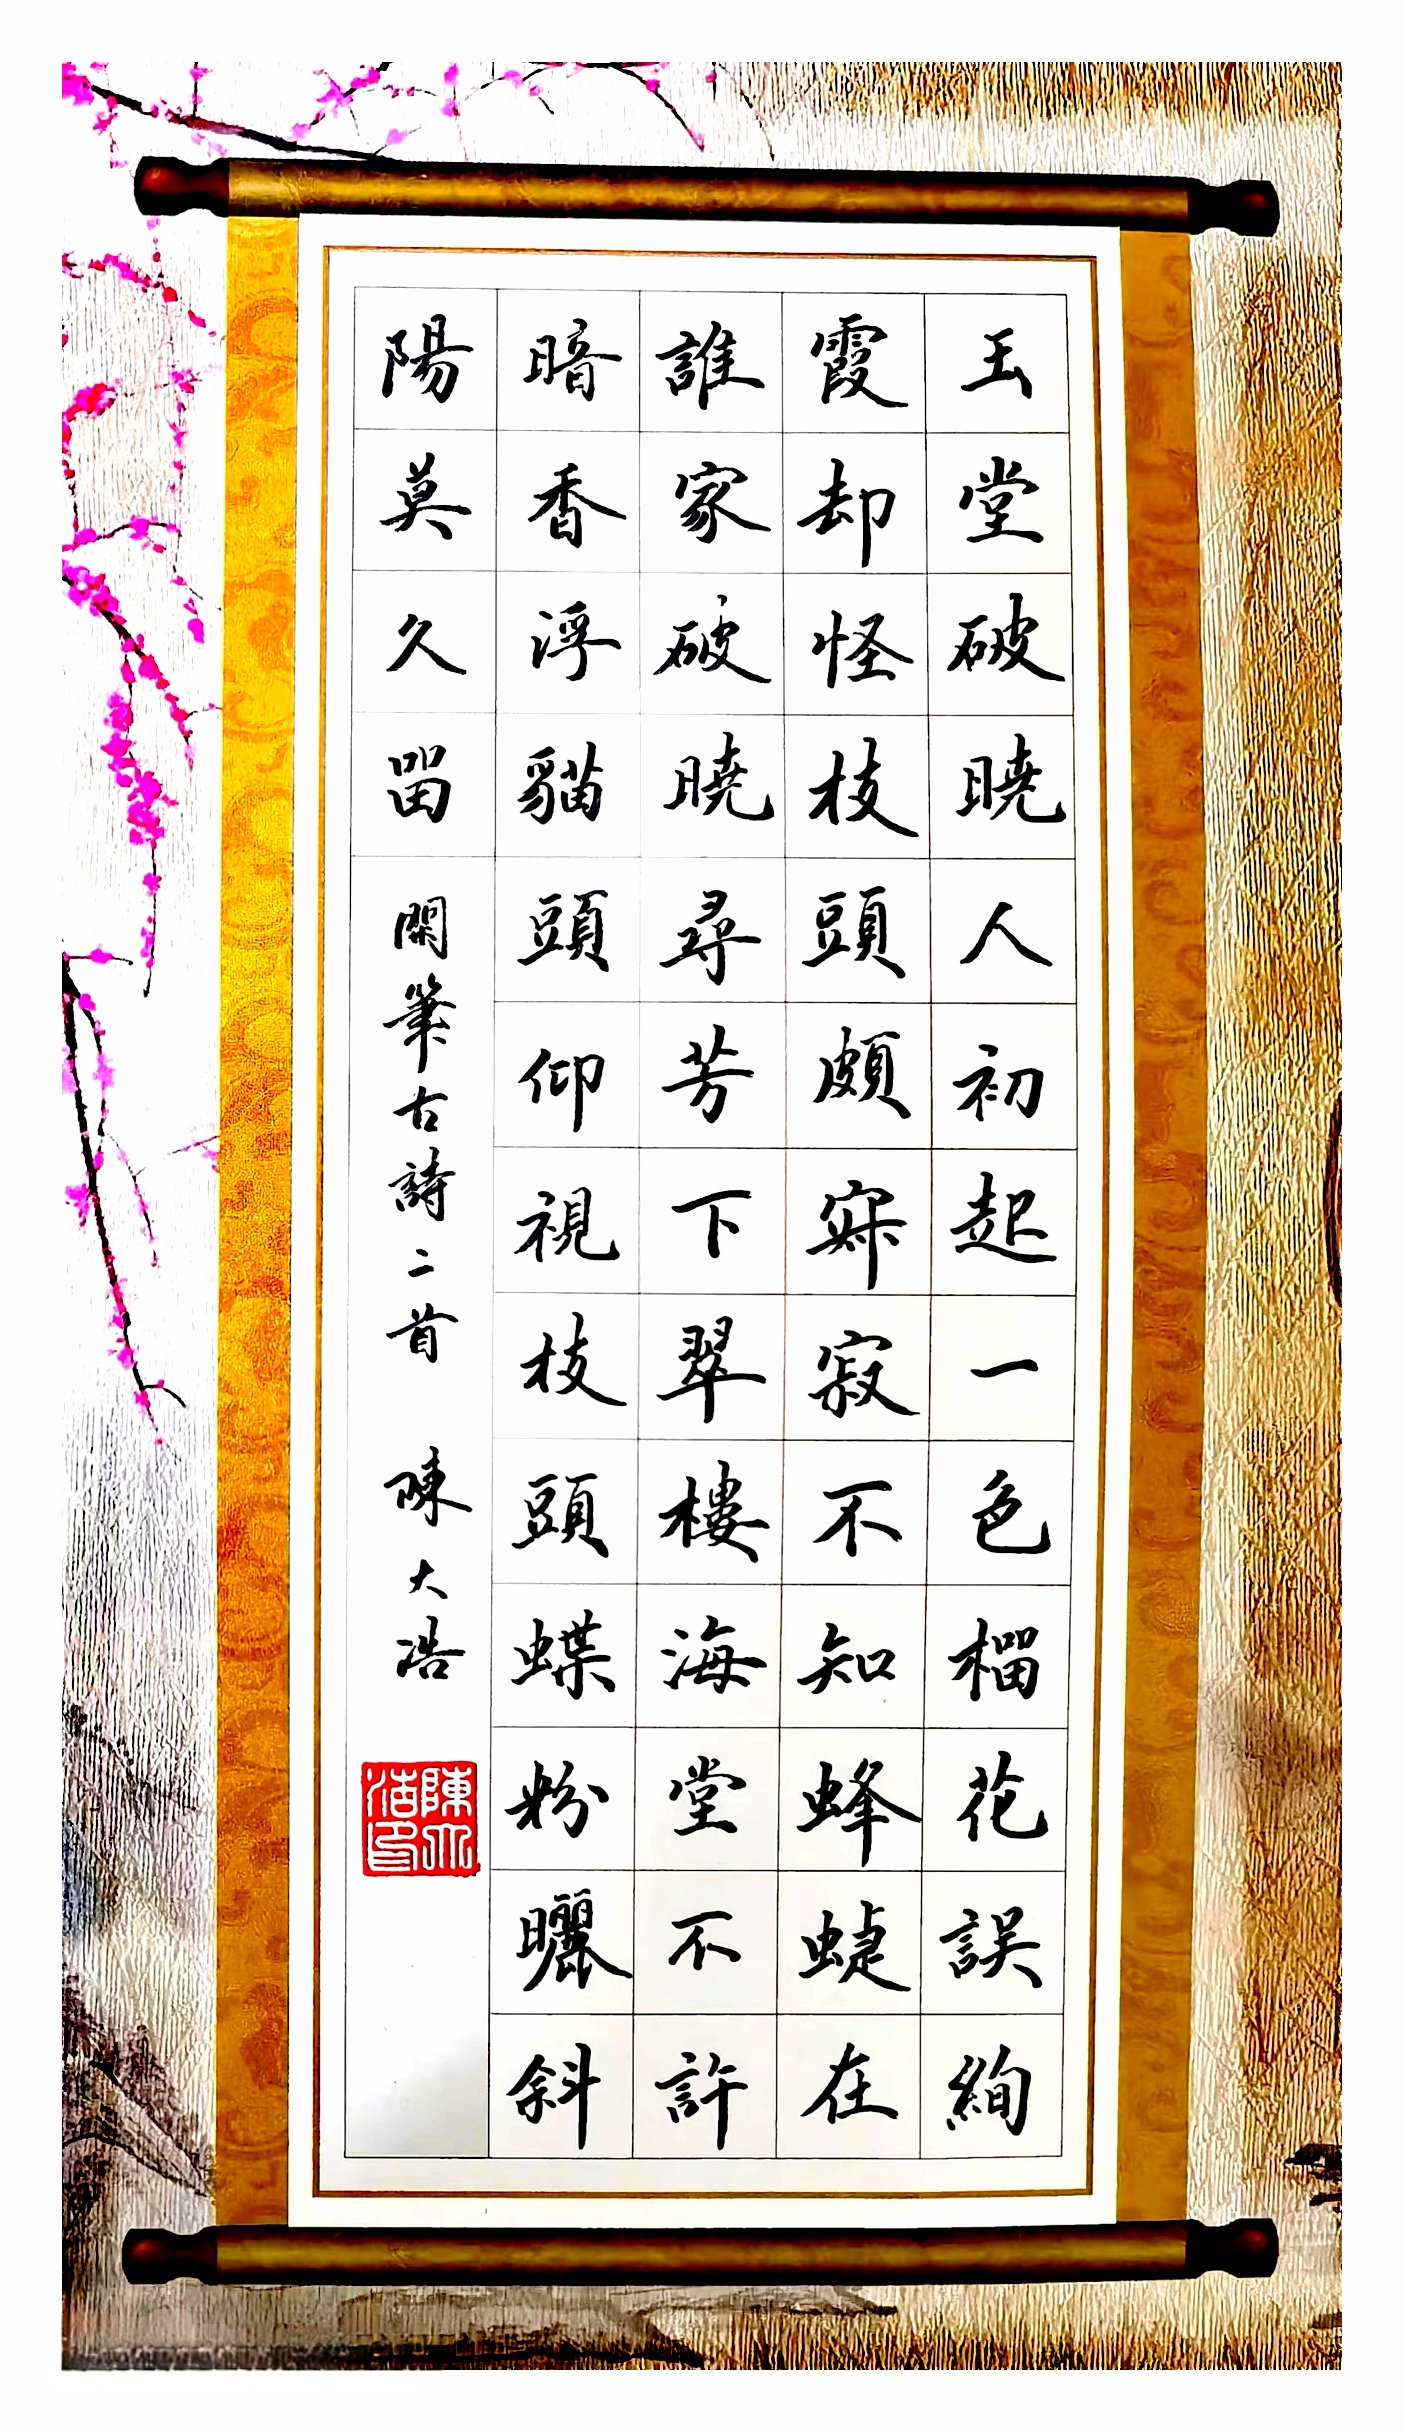 玉堂破曉人初起一色榴花誤絢
霞却怪枝頭頗寂寂不知蜂蜨在
誰家破曉尋芳下翠樓海堂不許
暗香浮貓頭仰視枝頭蝶粉曬斜
陽莫久留 開筆古詩二首 陳大浩
陳大浩印